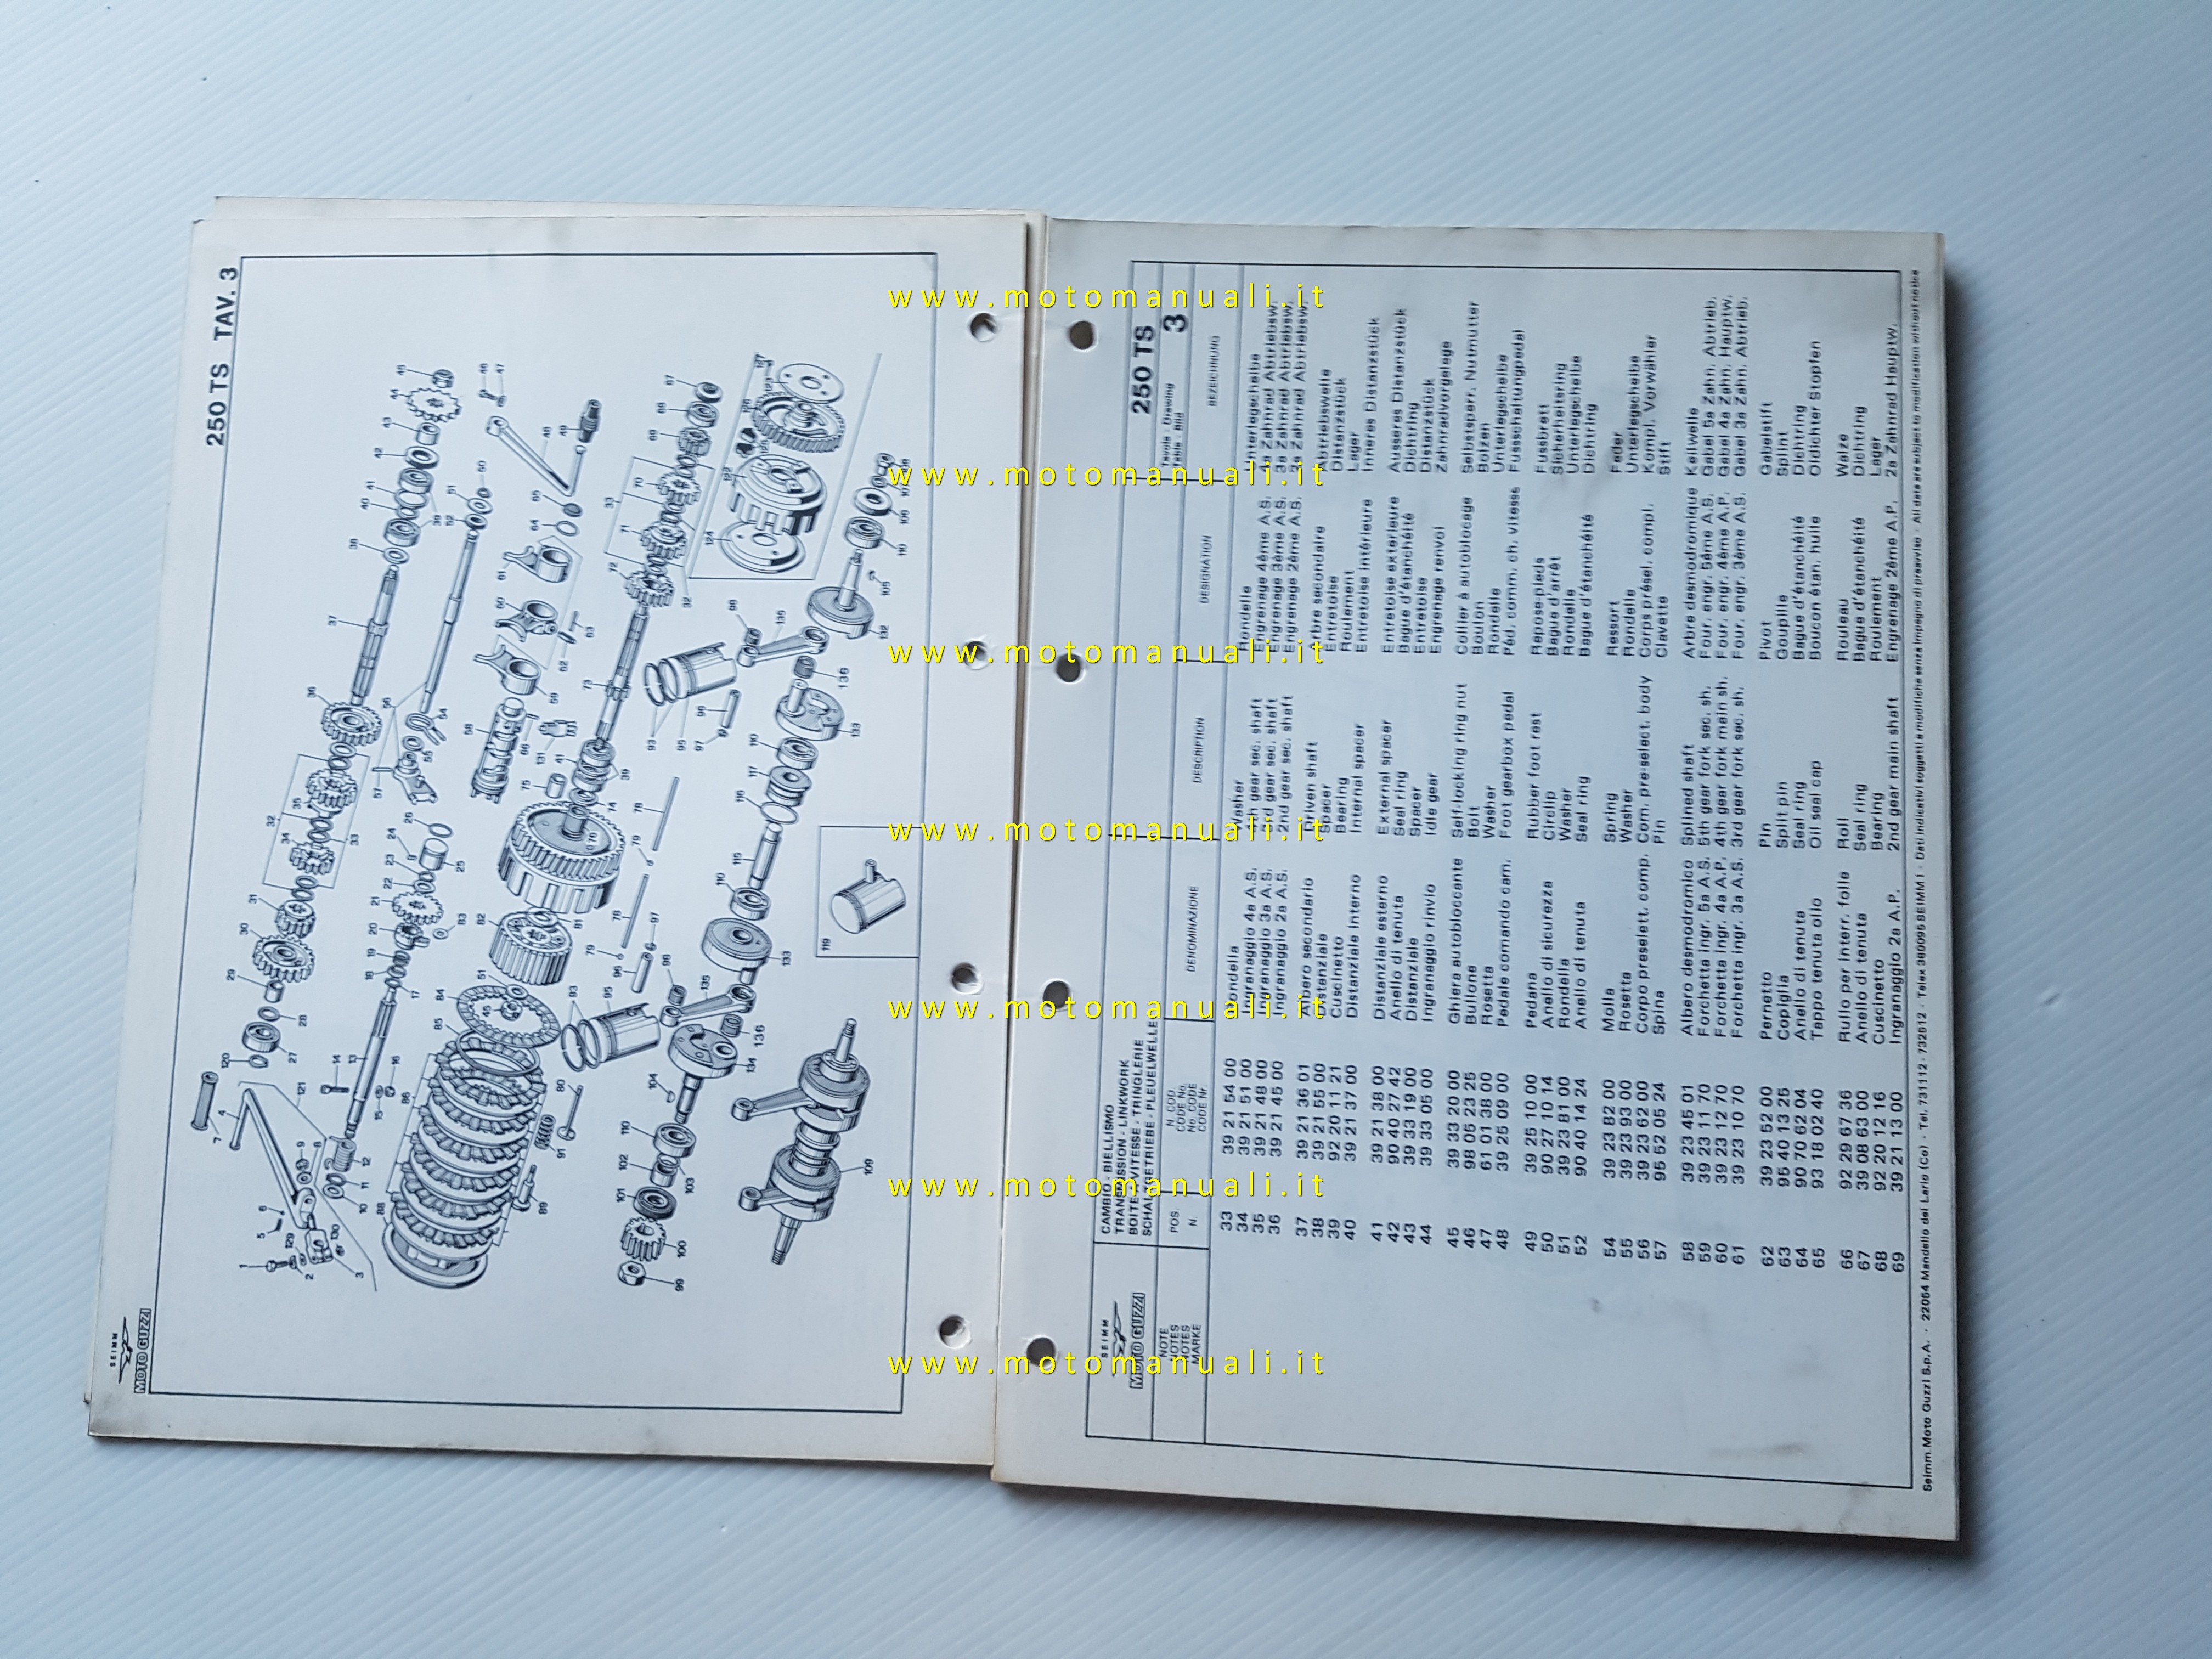 250 TS TAV. 3
SEIMM
MOTO GUZZI
SEIMM
MOTO GUZZI
CAMBIO - BIELLISMO
TRANSMISSION - LINKWORK
BOITE-VITESSE - TRINGLERIE
SCHALTGETRIEBE - PLEUELWELLE
250 TS
Tavola - Drawing
Table - Bild
3
NOTE
NOTES
NOTES
MARKE
POS.
N.
N. COD.
CODE No.
No CODE
CODE Nr.
DENOMINAZIONE
DESCRIPTION
DESIGNATION
BEZEICHNUNG
33 39 21 54 00 Rondella Washer Rondelle Unterlegscheibe
34 39 21 51 00 Ingranaggio 4a A.S. 4th gear sec. shaft Engrenage 4ème A.S. 4a Zahnrad Abtriebsw.
35 39 21 48 00 Ingranaggio 3a A.S. 3rd gear sec. shaft Engrenage 3ème A.S. 3a Zahnrad Abtriebsw.
36 39 21 45 00 Ingranaggio 2a A.S. 2nd gear sec. shaft Engrenage 2ème A.S. 2a Zahnrad Abtriebsw.
37 39 21 36 01 Albero secondario Driven shaft Arbre secondaire Abtriebswelle
38 39 21 55 00 Distanziale Spacer Entretoise Distanzstück
39 92 20 11 21 Cuscinetto Bearing Roulement Lager
40 39 21 37 00 Distanziale interno Internal spacer Entretoise intérieure Inneres Distanzstück
41 39 21 38 00 Distanziale esterno External spacer Entretoise exterieure Ausseres Distanzstück
42 90 40 27 42 Anello di tenuta Seal ring Bague d'étanchéité Dichtring
43 39 33 19 00 Distanziale Spacer Entretoise Distanzstück
44 39 33 05 00 Ingranaggio rinvio Idle gear Engrenage renvoi Zahnradvorgelege
45 39 33 20 00 Ghiera autobloccante Self-locking ring nut Collier à autoblocage Selbstsperr. Nutmutter
46 98 05 23 25 Bullone Bolt Boulon Bolzen
47 61 01 38 00 Rosetta Washer Rondelle Unterlegscheibe
48 39 25 09 00 Pedale comando cam. Foot gearbox pedal Péd. comm. ch. vitesse Fussschaltungpedal
49 39 25 10 00 Pedana Rubber foot rest Repose-pieds Fusbrett
50 90 27 10 14 Anello di sicureza Circlip Bague d'arrêt Sicherheitsring
51 39 23 81 00 Rondella Washer Rondelle Unterlegscheibe
52 90 40 14 24 Anello di tenuta Seal ring Bague d'étanchéité Dichtring
54 39 23 82 00 Molla Spring Ressort Feder
55 39 23 93 00 Rosetta Washer Rondelle Unterlegscheibe
56 39 23 62 00 Corpo preselett. comp. Com. pre-select. body Corps présel. compl. Kompl. Vorwähler
57 95 52 05 24 Spina Pin Clavette Stift
58 39 23 45 01 Albero desmodromico Splined shaft Arbre desmodromique Keilwelle
59 39 23 11 70 Forchetta ingr. 5a A.S. 5th gear fork sec. sh. Four. engr. 5ème A.S. Gabel 5a Zahn. Abtrieb.
60 39 23 12 70 Forchetta ingr. 4a A.P. 4th gear fork main sh. Four. engr. 4ème A.P. Gabel 4a Zahn. Hauptw.
61 39 23 10 70 Forchetta ingr. 3a A.S. 3rd gear fork sec. sh. Four. engr. 3ème A.S. Gabel 3a Zahn. Abtrieb.
62 39 23 52 00 Pernetto Pin Pivot Gabelstift
63 95 40 13 25 Copiglia Split pin Goupille Splint
64 90 70 62 04 Anello di tenuta Seal ring Bague d'étanchéité Dichtring
65 93 18 02 40 Tappo tenuta olio Oil seal cap Boucon étan. huile Oldichter Stopfen
66 92 29 67 36 Rullo per interr. folle Roll Rouleau Walze
67 39 08 63 00 Anello di tenuta Seal ring Bague d'étanchéité Dichtring
68 92 20 12 16 Cuscinetto Bearing Roulement Lager
69 39 21 13 00 Ingranaggio 2a A.P. 2nd gear main shaft Engrenage 2ème A.P. 2a Zahnrad Hauptw.
Seimm Moto Guzzi S.p.A. - 22054 Mandello del Lario (Co) - Tel. 731112 - 732512 - Telex 380095 SEIMM I - Dati indicativi soggetti a modifiche senza impegno di preavviso - All data are subject to modification without notice
www.motomanuali.it
www.motomanuali.it
www.motomanuali.it
www.motomanuali.it
www.motomanuali.it
www.motomanuali.it
www.motomanuali.it